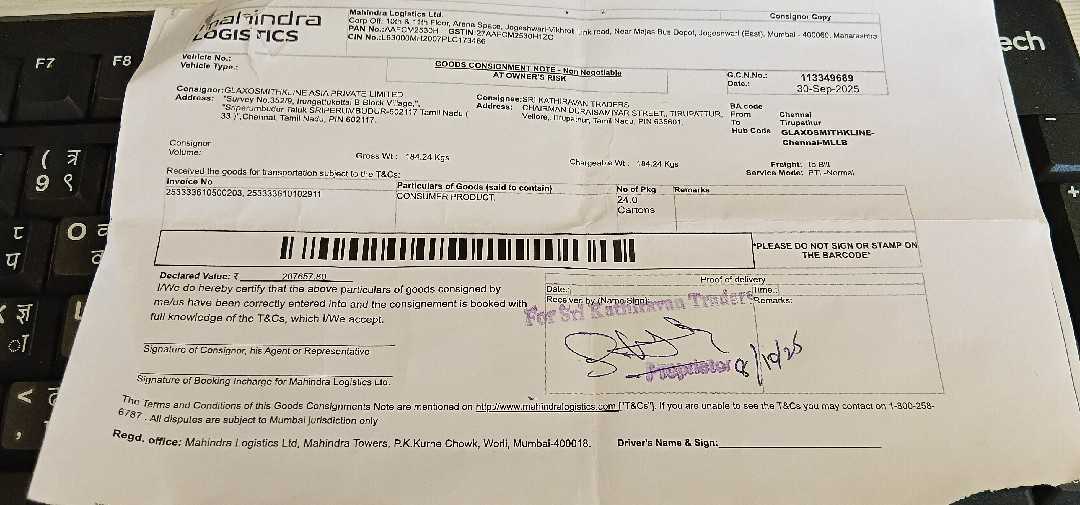 mahindra
LOGISTICS
Mahindra Logistics Ltd.
Consignor Copy
Corp Off: 10th & 11th Floor, Arena Space, Jogeshwari-Vikhroli Link road, Near Majas Bus Depot, Jogeshwari (East), Mumbai - 400060, Maharashtra
PAN No.:AAFCM2530H GSTIN:27AAFCM2530H1ZO
CIN No.:L63000MH2007PLC173466
Vehicle No.:
Vehicle Type.:
GOODS CONSIGNMENT NOTE - Non Negotiable
AT OWNER'S RISK
G.C.N.No.: 113349689
Date.: 30-Sep-2025
Consignor:GLAXOSMITHKLINE ASIA PRIVATE LIMITED
Address: "Survey No.352/9, Irungattukottai B Block Village,",
"Sriperumbudur Taluk SRIPERUMBUDUR-602117 Tamil Nadu (
33 )",Chennai, Tamil Nadu, PIN 602117.
Consignee:SRI KATHIRAVAN TRADERS
Address: CHAIRMAN DURAISAMNAR STREET,, TIRUPATTUR,
Vellore, Tirupathur, Tamil Nadu, PIN 635601.
BA code
From Chennai
To Tirupathur
Hub Code GLAXOSMITHKLINE-
Chennai-MLLB
Consignor
Volume:
Gross Wt : 184.24 Kgs
Chargeable Wt : 184.24 Kgs
Freight: To Bill
Service Mode: PTL -Normal
Received the goods for transportation subject to the T&Cs:
Invoice No
Particulars of Goods (said to contain)
No of Pkg
Remarks
253333610500203, 253333610102911
CONSUMER PRODUCT
24.0
Cartons
*PLEASE DO NOT SIGN OR STAMP ON
THE BARCODE*
Declared Value: ₹ 207657.80
I/We do hereby certify that the above particulars of goods consigned by
me/us have been correctly entered into and the consignement is booked with
full knowledge of the T&Cs, which I/We accept.
Proof of delivery
Date.:
Time.:
Receiver by (Name Sign):
Remarks:
For Sri Kathiravan Traders
Proprietor
8/10/25
Signature of Consignor, his Agent or Representative
Signature of Booking Incharge for Mahindra Logistics Ltd.
The Terms and Conditions of this Goods Consignments Note are mentioned on http://www.mahindralogistics.com ["T&Cs"]. If you are unable to see the T&Cs you may contact on 1-800-258-
6787 . All disputes are subject to Mumbai jurisdiction only
Regd. office: Mahindra Logistics Ltd, Mahindra Towers, P.K.Kurne Chowk, Worli, Mumbai-400018.
Driver's Name & Sign:
F7
F8
( त्र
9 ९
O
ech